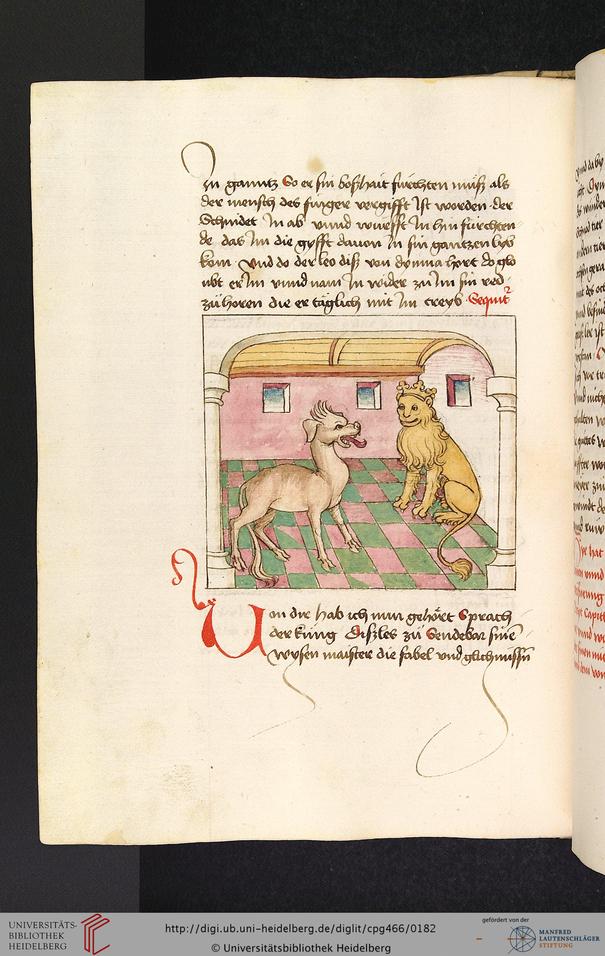 In gantz So er sin boßhait fürchten müß als
der mensch des finger vergifft ist worden der
Schnidet In ab vnnd würfft In hin fürchten
de das Im die gyfft dauon In sin gantzen lyb
kom Vnd do der leo diß von dymna hort do glo
ubt er Im vnnd nam In wider zu Im sin red
zü horen die er täglich mit Im treyb Sequitr
Von dir hab ich nun gehöret Sprach
der küng Dißles zü Sendebar sinē
wysen maister die fabel vnd glichnussen
UNIVERSITÄTS-
BIBLIOTHEK
HEIDELBERG
http://digi.ub.uni-heidelberg.de/diglit/cpg466/0182
© Universitätsbibliothek Heidelberg
gefördert von der
MANFRED
LAUTENSCHLÄGER
STIFTUNG